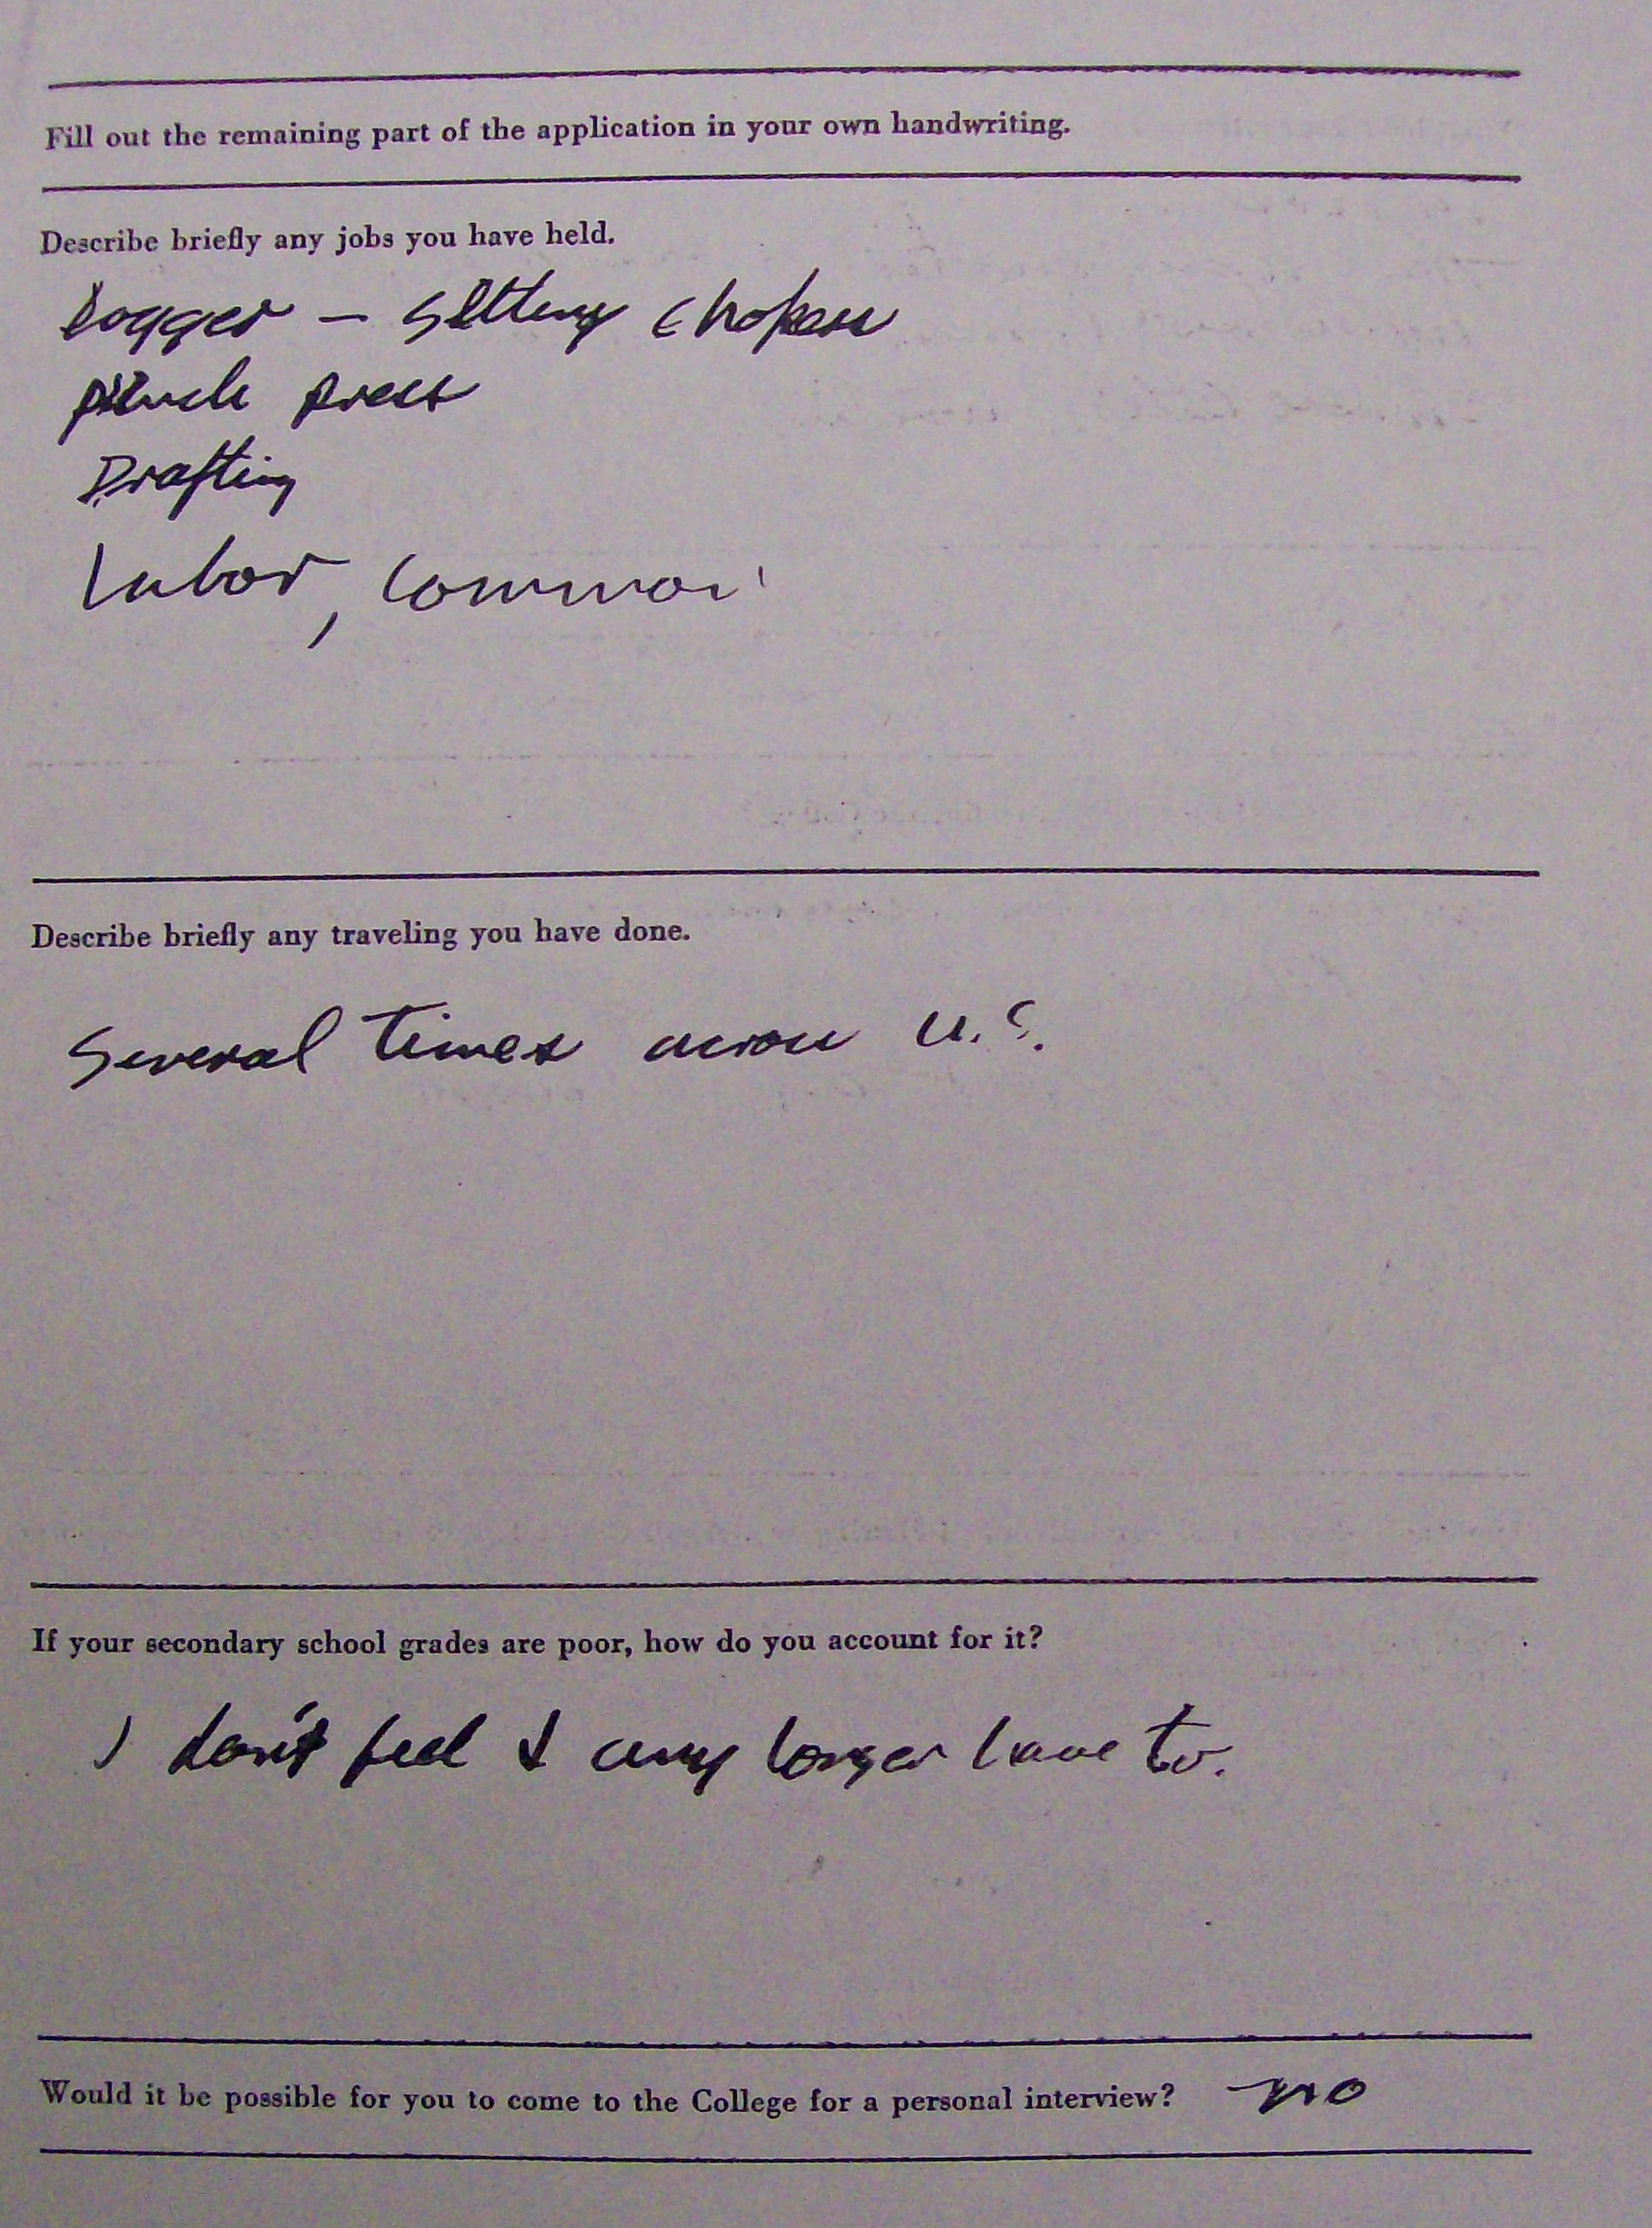 Fill out the remaining part of the application in your own handwriting.
Describe briefly any jobs you have held.
Logger — Setting chokers
punch press
Drafting
Labor, common
Describe briefly any traveling you have done.
Several times across U.S.
If your secondary school grades are poor, how do you account for it?
I don't feel I any longer have to.
Would it be possible for you to come to the College for a personal interview? no